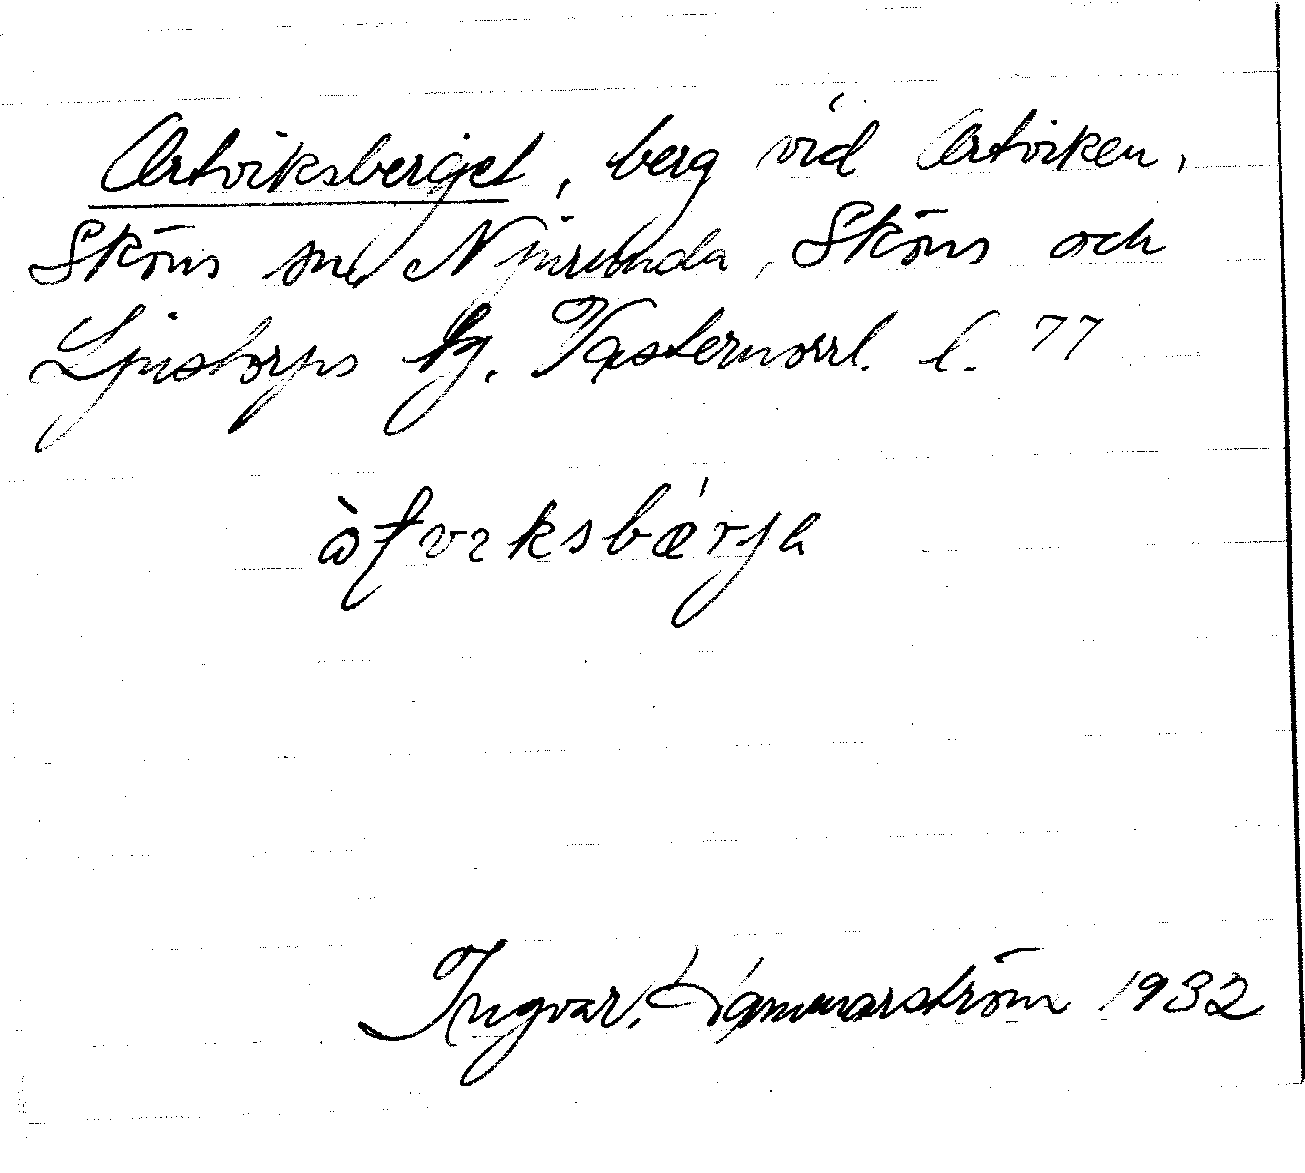 Artviksberget, berg vid Artviken,
Sköns sn, Njurunda, Sköns och
Ljustorps tg. Västernorrl. l. 77
Ingvar Hammarström 1932